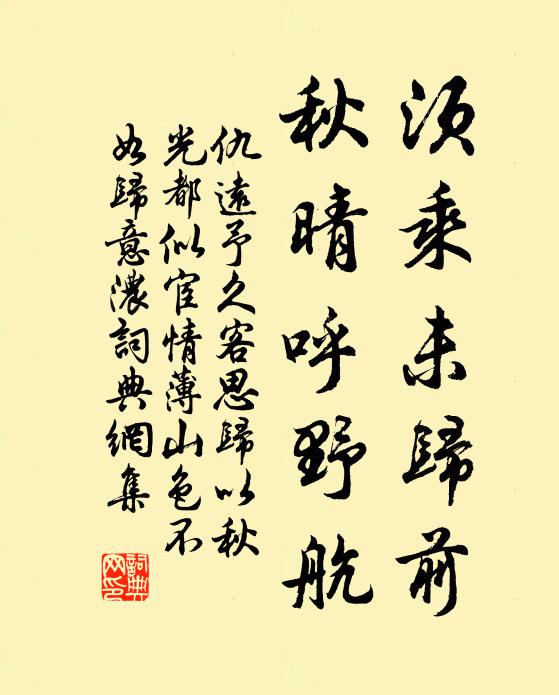 須乘未歸前
秋晴呼野航
仇遠予久客思歸以秋
光都似宦情薄山色不
如歸意濃詞典網集
詞典網印